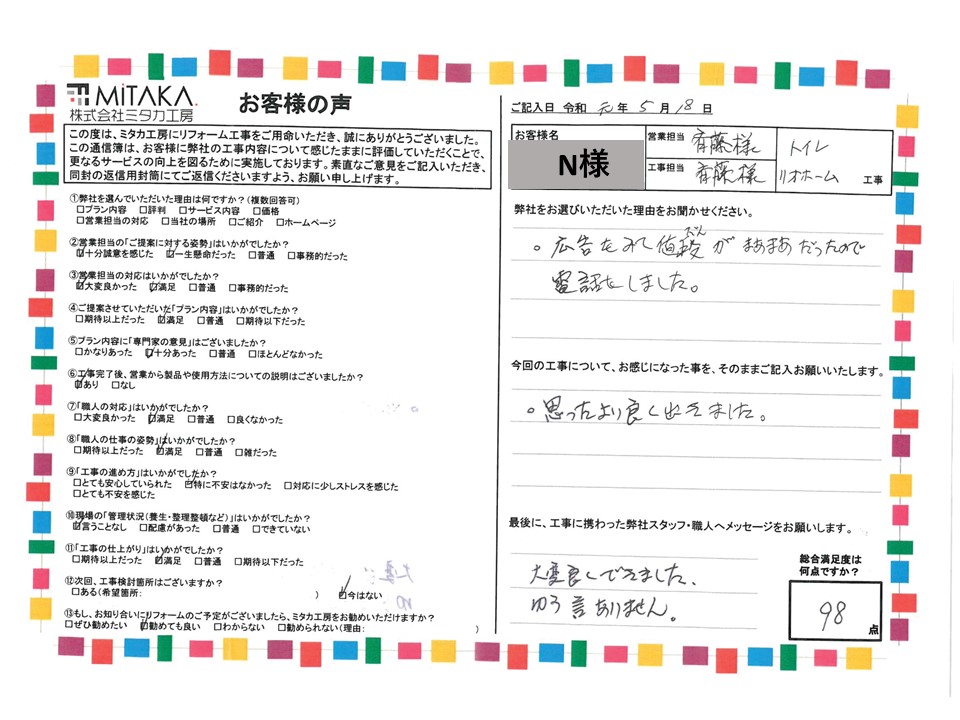 MiTAKA
株式会社ミタカ工房
お客様の声
この度は、ミタカ工房にリフォーム工事をご用命いただき、誠にありがとうございました。
この通信簿は、お客様に弊社の工事内容について感じたままに評価していただくことで、
更なるサービスの向上を図るために実施しております。素直なご意見をご記入いただき、
同封の返信用封筒にてご返信くださいますよう、お願い申し上げます。
①弊社を選んでいただいた理由は何ですか?(複数回答可)
□プラン内容 □評判 □サービス内容 □価格
□営業担当の対応 □当社の場所 □ご紹介 □ホームページ
②営業担当の「ご提案に対する姿勢」はいかがでしたか?
☑十分誠意を感じた ☑一生懸命だった □普通 □事務的だった
③営業担当の対応はいかがでしたか?
☑大変良かった ☑満足 □普通 □事務的だった
④ご提案させていただいた「プラン内容」はいかがでしたか?
□期待以上だった ☑満足 □普通 □期待以下だった
⑤プラン内容に「専門家の意見」はございましたか?
□かなりあった ☑十分あった □普通 □ほとんどなかった
⑥工事完了後、営業から製品や使用方法についての説明はございましたか?
☑あり □なし
⑦「職人の対応」はいかがでしたか?
□大変良かった ☑満足 □普通 □良くなかった
⑧「職人の仕事の姿勢」はいかがでしたか?
□期待以上だった ☑満足 □普通 □雑だった
⑨「工事の進め方」はいかがでしたか?
□とても安心していられた ☑特に不安はなかった □対応に少しストレスを感じた
□とても不安を感じた
⑩現場の「管理状況(養生・整理整頓など)」はいかがでしたか?
☑言うことなし □配慮があった □普通 □できていない
⑪「工事の仕上がり」はいかがでしたか?
□期待以上だった ☑満足 □普通 □期待以下だった
⑫次回、工事検討箇所はございますか?
□ある(希望箇所: ) ☑今はない
⑬もし、お知り合いにリフォームのご予定がございましたら、ミタカ工房をお勧めいただけますか?
□ぜひ勧めたい ☑勧めても良い □わからない □勧められない(理由: )
ご記入日 令和 元年 5月 18日
お客様名
N様
営業担当 斉藤様
工事担当 斉藤様
トイレ
リオホーム 工事
弊社をお選びいただいた理由をお聞かせください。
。広告をみて値段がまあまあだったので
だん
電話をしました。
今回の工事について、お感じになった事を、そのままご記入お願いいたします。
。思ったより良く出来ました。
最後に、工事に携わった弊社スタッフ・職人へメッセージをお願いします。
大変良くできました、
ゆう言ありません。
総合満足度は
何点ですか?
98点